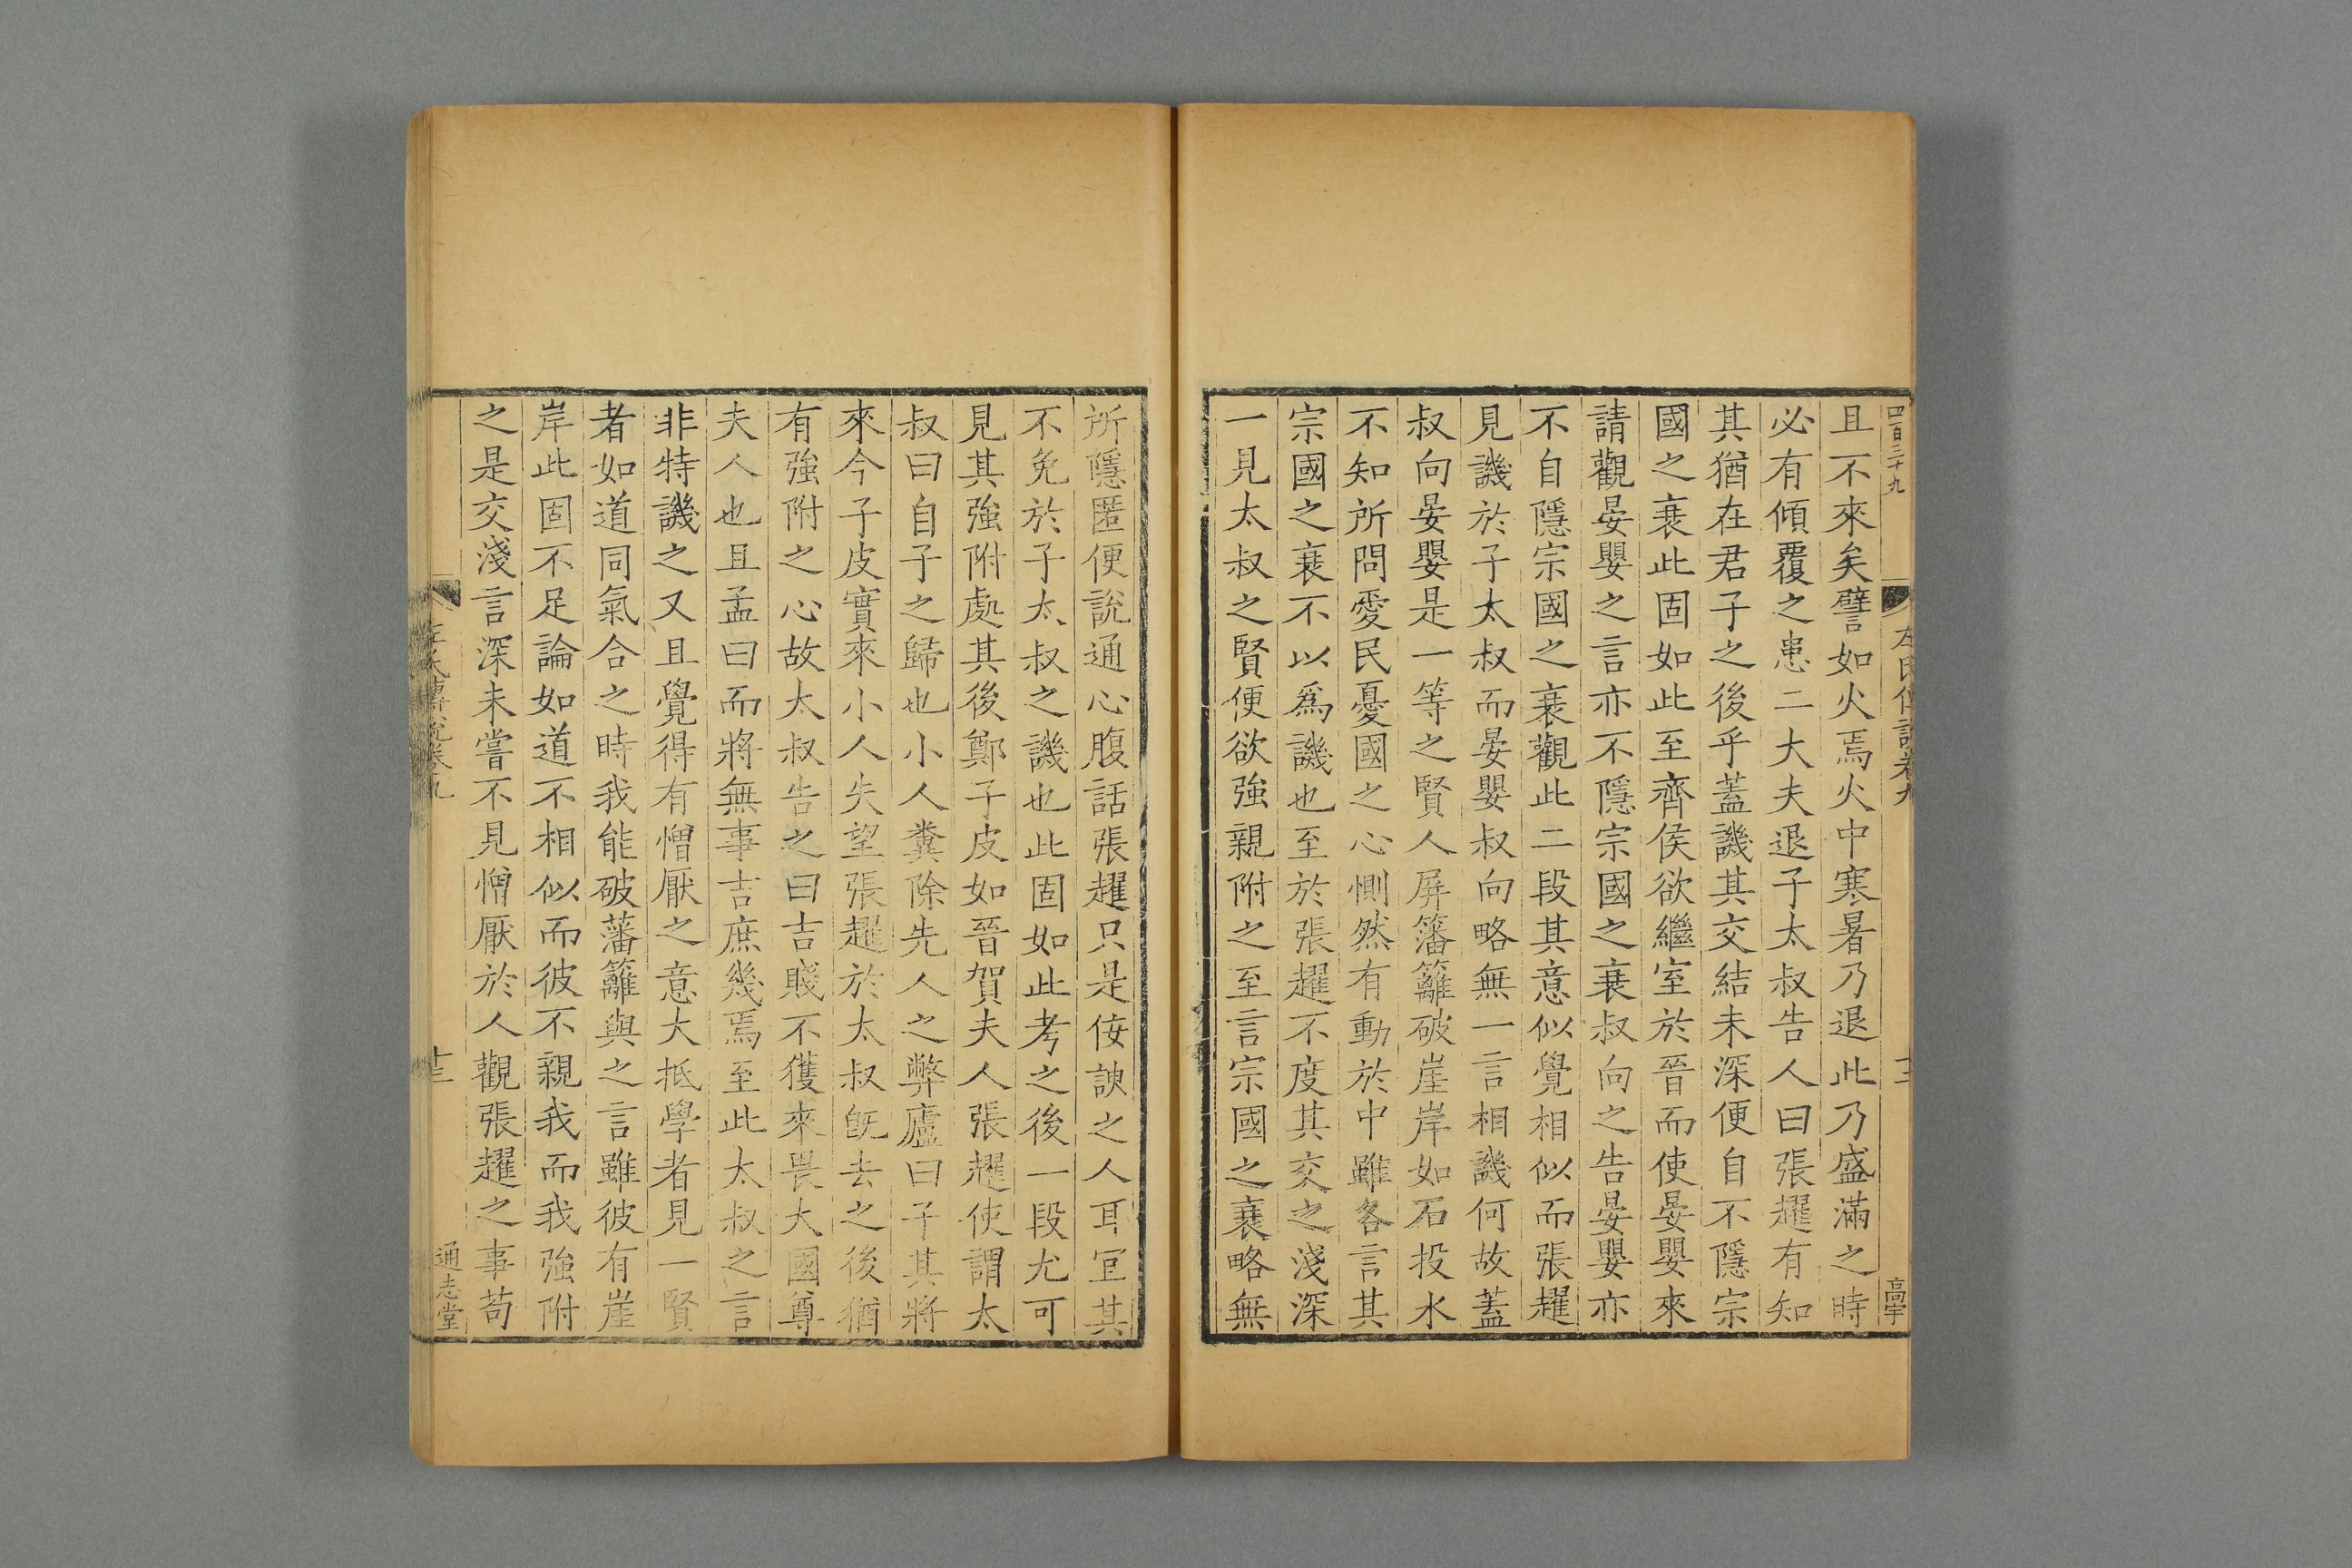 四百三十九
左氏傳說卷九
十二
高宇
且不來矣譬如火焉火中寒暑乃退此乃盛滿之時
必有傾覆之患二大夫退子太叔告人曰張趯有知
其猶在君子之後乎蓋譏其交結未深便自不隱宗
國之衰此固如此至齊侯欲繼室於晉而使晏嬰來
請觀晏嬰之言亦不隱宗國之衰叔向之告晏嬰亦
不自隱宗國之衰觀此二段其意似覺相似而張趯
見譏於子太叔而晏嬰叔向略無一言相譏何故蓋
叔向晏嬰是一等之賢人屏籓籬破崖岸如石投水
不知所問愛民憂國之心惻然有動於中雖各言其
宗國之衰不以爲譏也至於張趯不度其交之淺深
一見太叔之賢便欲強親附之至言宗國之衰略無
所隱匿便說通心腹話張趯只是侫諛之人耳宜其
不免於子太叔之譏也此固如此考之後一段尤可
見其強附處其後鄭子皮如晉賀夫人張趯使謂太
叔曰自子之歸也小人糞除先人之弊廬曰子其將
來今子皮實來小人失望張趯於太叔旣去之後猶
有強附之心故太叔告之曰吉賤不獲來畏大國尊
夫人也且孟曰而將無事吉庶幾焉至此太叔之言
非特譏之又且覺得有憎厭之意大抵學者見一賢
者如道同氣合之時我能破藩籬與之言雖彼有崖
岸此固不足論如道不相似而彼不親我而我強附
之是交淺言深未嘗不見憎厭於人觀張趯之事苟
左氏傳說卷九
十三
通志堂